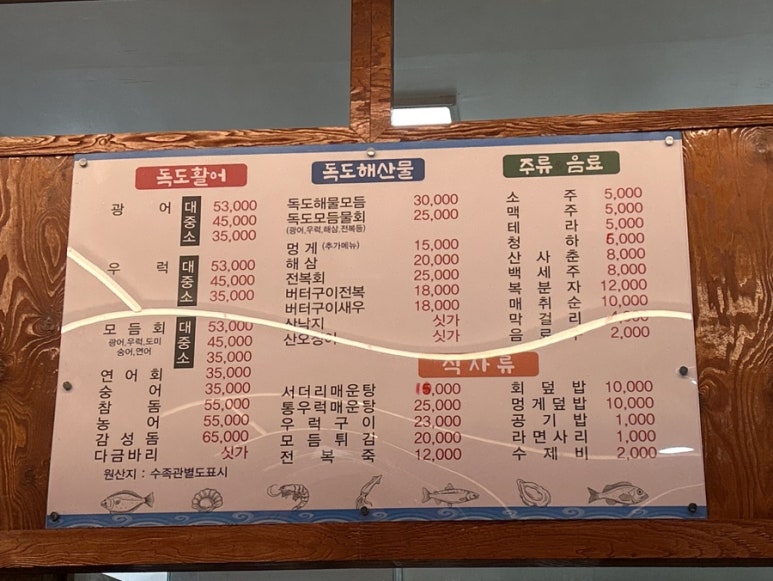 독도활어
광어 대 53,000
중 45,000
소 35,000
우럭 대 53,000
중 45,000
소 35,000
모듬회 대 53,000
(광어,우럭,도미 중 45,000
숭어,연어) 소 35,000
연어회 35,000
숭어 35,000
참돔 55,000
농어 55,000
감성돔 65,000
다금바리 싯가
원산지 : 수족관별도표시
독도해산물
독도해물모듬 30,000
독도모듬물회 25,000
(광어,우럭,해삼,전복등)
멍게 (추가메뉴) 15,000
해삼 20,000
전복회 25,000
버터구이전복 18,000
버터구이새우 18,000
산낙지 싯가
산오징어 싯가
주류 음료
소주 5,000
맥주 5,000
테라 5,000
청하 6,000
산사춘 8,000
백세주 8,000
복분자 12,000
매취순 10,000
막걸리
음료수 2,000
식사류
서더리매운탕 15,000
통우럭매운탕 25,000
우럭구이 23,000
모듬튀김 20,000
전복죽 12,000
회덮밥 10,000
멍게덮밥 10,000
공기밥 1,000
라면사리 1,000
수제비 2,000